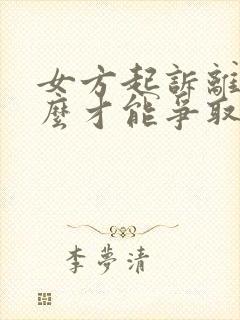 女方起訴離
麼才能爭取
李夢清